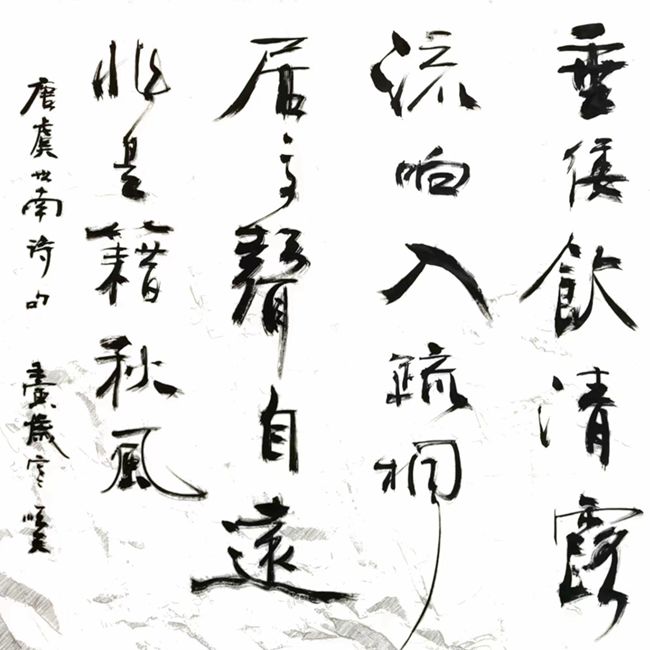 垂倭飲清露
流响入疏桐
居高聲自遠
非是籍秋風
唐虞世南诗句